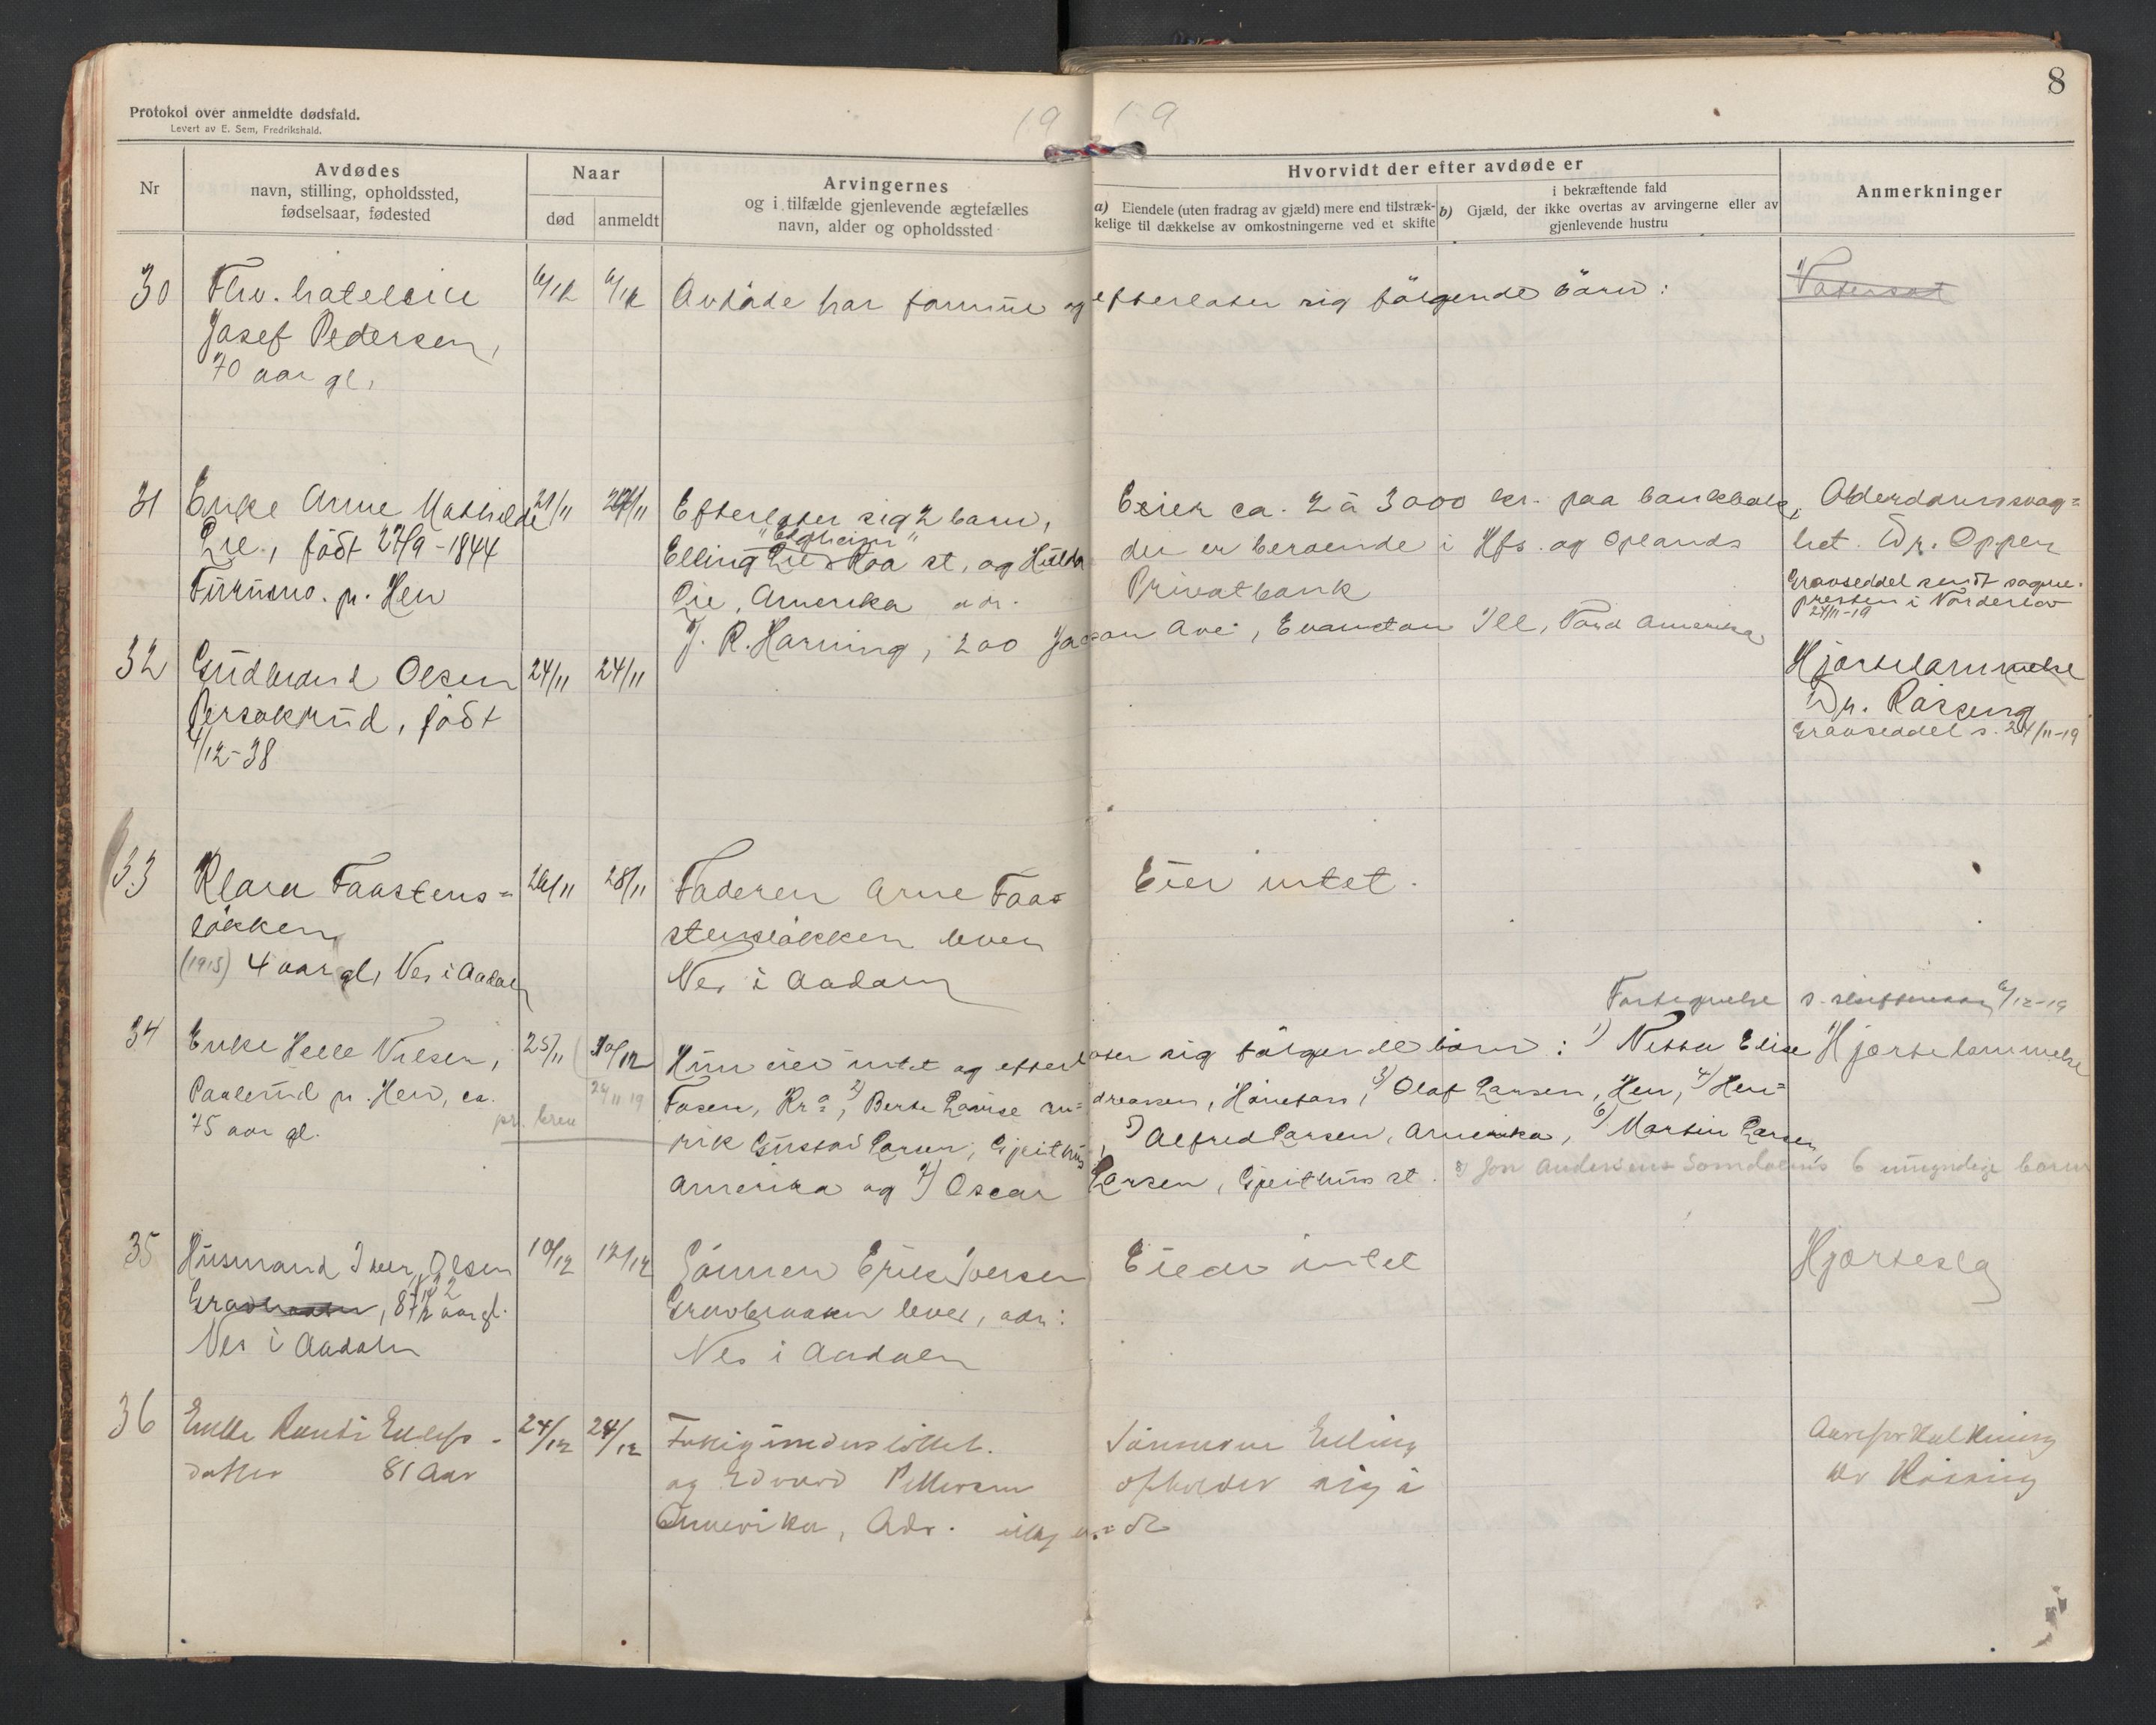 8
Protokol over anmeldte dødsfald.
Levert av E. Sem, Fredrikshald.
19 19
Nr
Avdødes
navn, stilling, opholdssted,
fødselsaar, fødested
Naar
død
anmeldt
Arvingernes
og i tilfælde gjenlevende ægtefælles
navn, alder og opholdssted
Hvorvidt der efter avdøde er
a) Eiendele (uten fradrag av gjæld) mere end tilstræk-
kelige til dækkelse av omkostningerne ved et skifte
i bekræftende fald
b) Gjæld, der ikke overtas av arvingerne eller av
gjenlevende hustru
Anmerkninger
30
Fhv. hoteleier
Josef Pedersen,
70 aar gl.
Avdøde har formue og efterlater sig følgende børn:
31
Enke Anne Mathilde
Lie, født 27/9-1844
Furumo. p. Hen
21/11
Efterlater sig 2 barn,
Elling Lie Roa st. og Hulda
Lie, Amerika adr.
J. R. Harning, 200 Ave, Evanston Ill, Nord Amerika
Eier ca. 2 à 3000 kr. paa bankbok,
der er beroende i Hfs. og Oplands
Privatbank
Alderdomssvag=
het. Dr. Oppen
Gravseddel sendt sogne-
presten i Norderhov
24/11-19
32
Gudbrand Olsen
født
1/12-38
24/11
24/11
Hjertelammelse
Dr. Røssing
Gravseddel s. 24/11-19
33
Klara Faastens=
løkken
(1915) 4 aar gl, Nes i Aadalen
26/11
28/11
Faderen Arne Faa=
stensløkken lever
Nes i Aadalen
Eier intet.
6/12-19
34
Enke Helle Nilsen,
Paalerud p. Hen, ca.
75 aar gl.
25/11
24/11 19
pr. brev
Hun eier intet og efterlater sig følgende børn: 1) Elise
Fosen, Kr.a, 2) Berte Lovise An=dreassen, Hønefoss, 3) Olaf Larsen, Hen, 4) Hen=
rik Gustav Larsen, Gjeithus, 5) Alfred Larsen, Amerika, 6) Martin Larsen
Amerika og 7) Oscar Larsen, Gjeithus st. 8) Jon Andersens 6 umyndige barn
Hjertelammelse
35
Husmand Iver Olsen
Nes i Aadalen
10/12
12/12
Sønnen Erik Iversen
Gravbraaten lever, adr:
Nes i Aadalen
Eier intet
Hjerteslag
36
Enke Randi
datter 81 Aar
24/12
24/12
Fattigunderstøttet.
og Edvard Pettersen
Amerika, Adr.
Sønnerne Elling
opholder sig i
Aareforkalkning
Dr Røssing